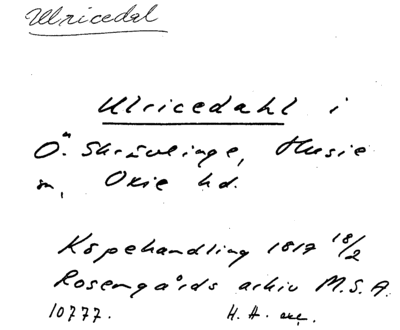 Ulricedal
Ulricedahl i
Ö. Skrävlinge, Husie
sn, Oxie hd.
Köpehandling 1817 18/2
Rosengårds arkiv M.S.A.
10777. H. H. exc.